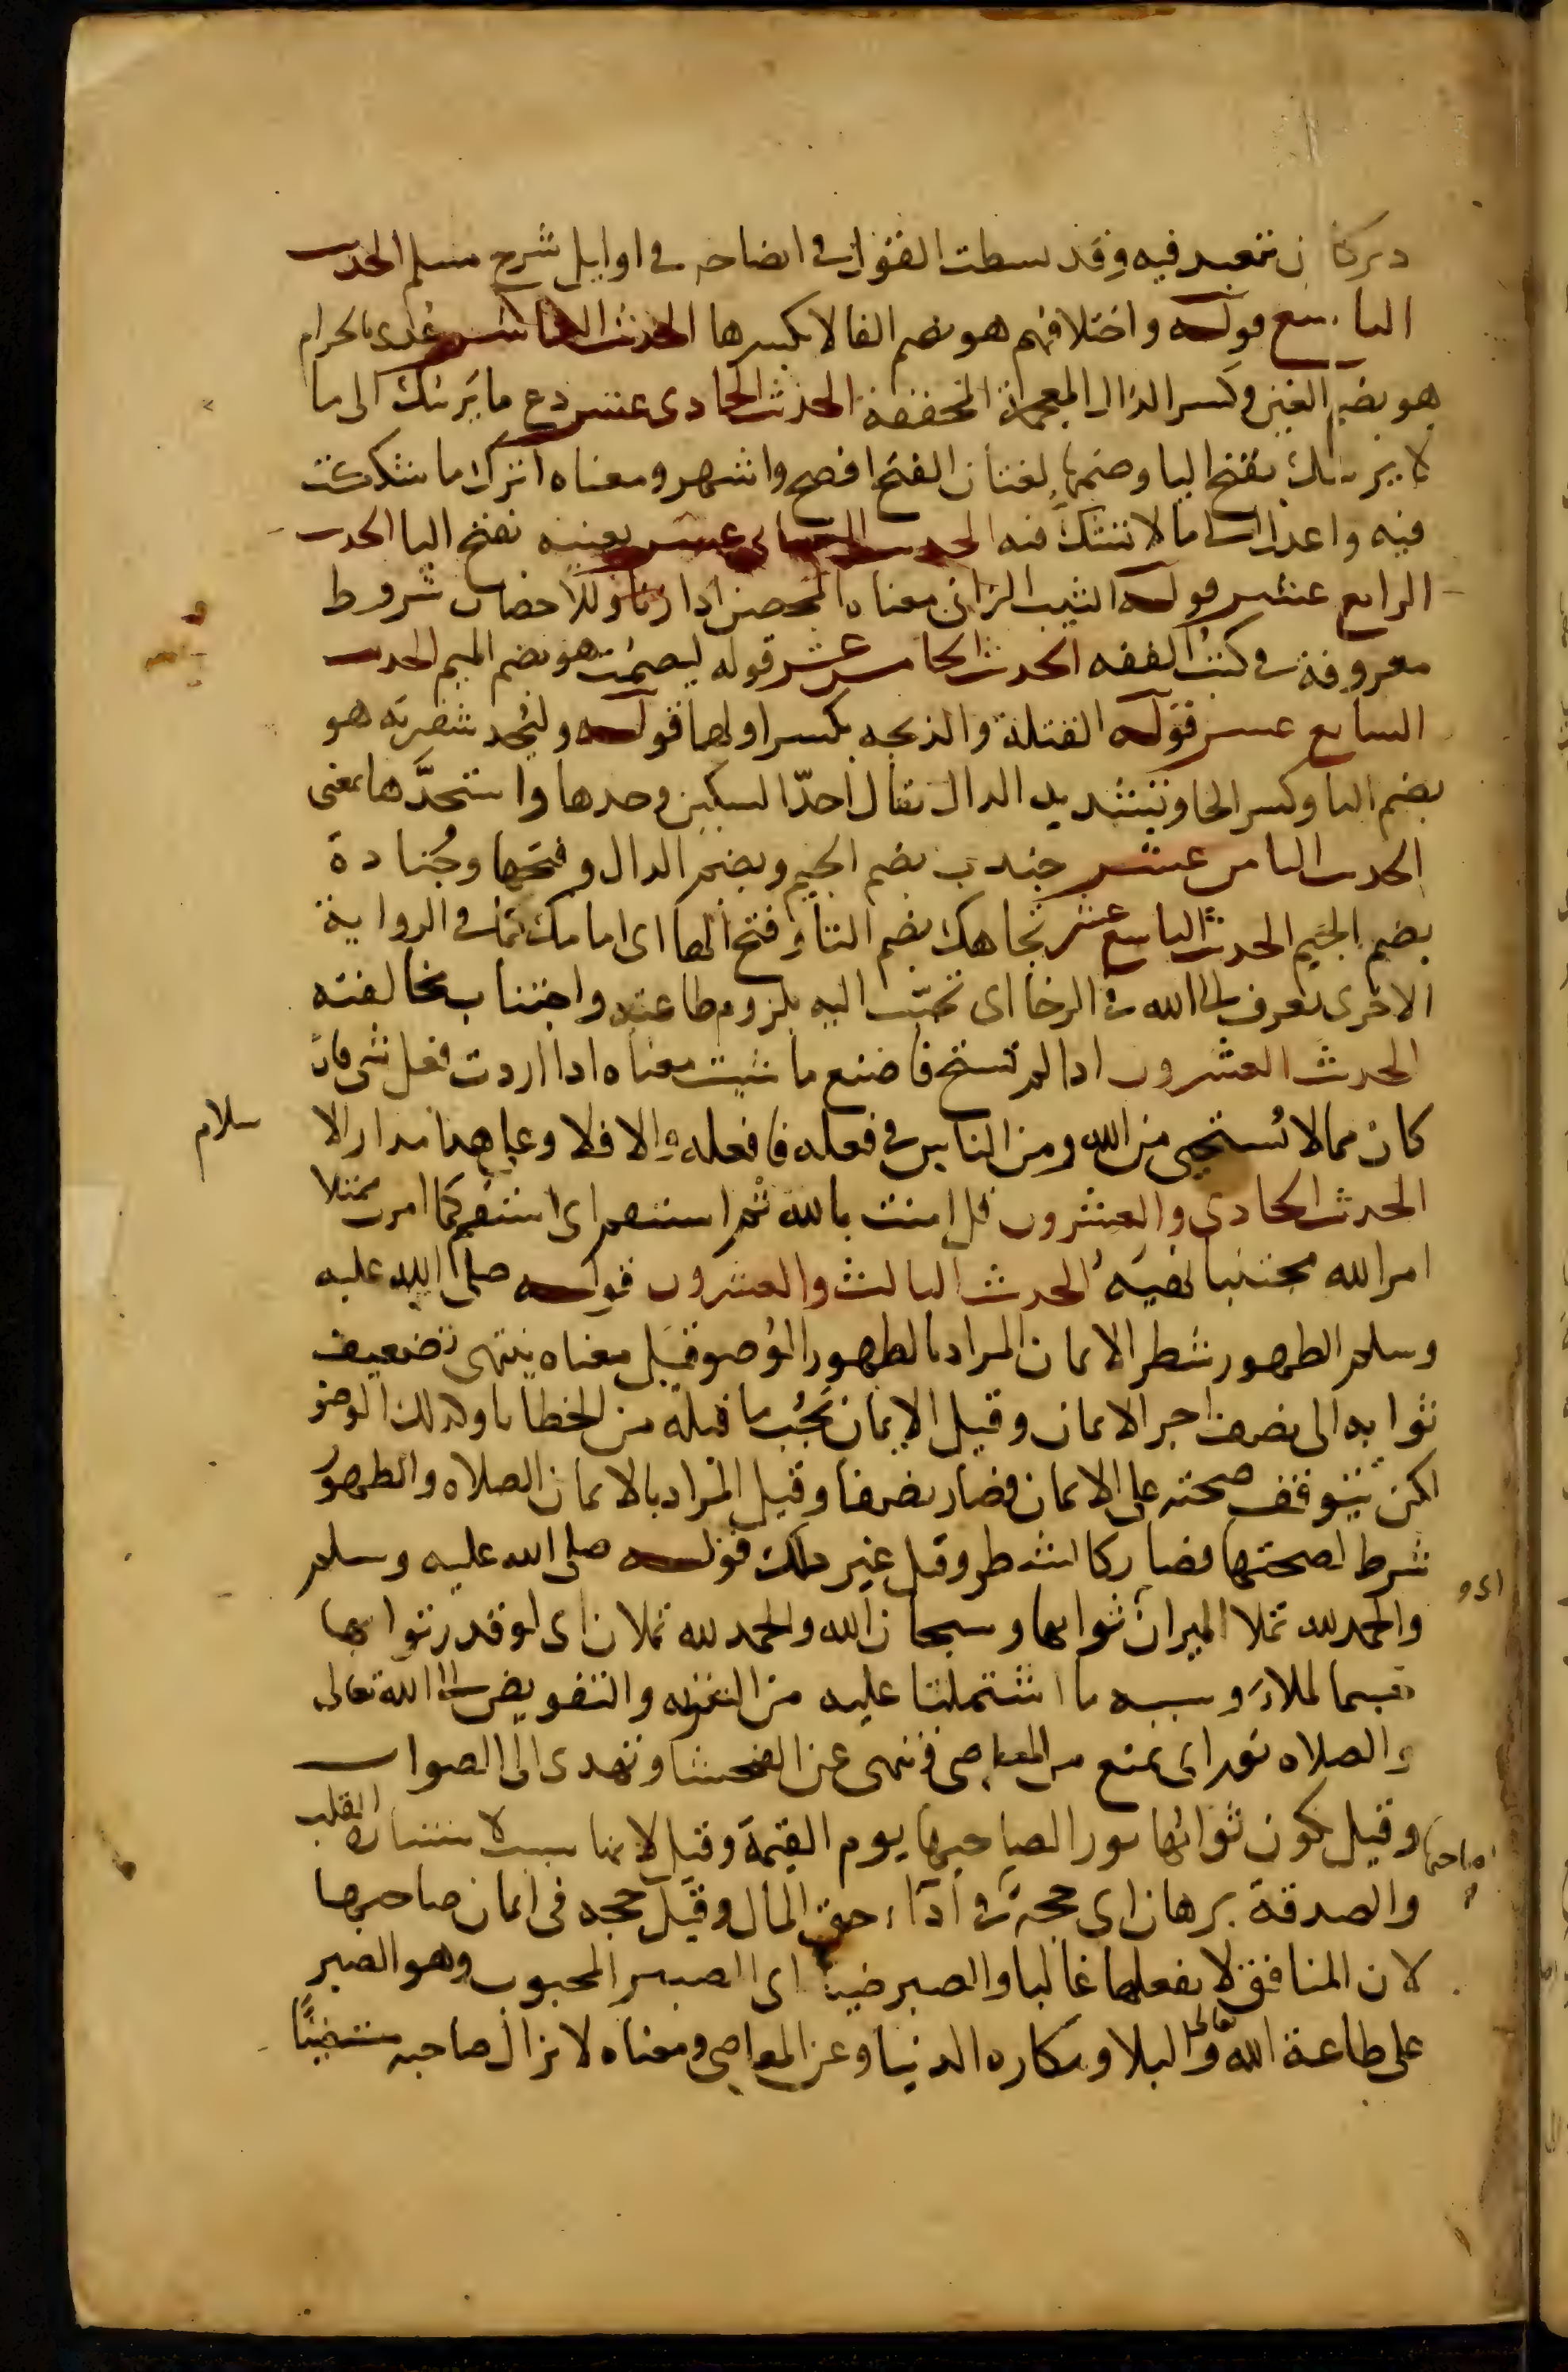 ن تتعبد فيه وقد بسطت القول في ايضاحه في اوايل شرح مسلم الحديث
التاسع قوله واختلافهم هو بضم الفا لا بكسرها الحديث العاشر غذي بالحرام
هو بضم الغين وكسر الذال المعجمة المخففة الحديث الحادي عشر دع ما يريبك الى ما
لا يريبك بفتح اليا وضمها لغتان الفتح افصح واشهر ومعناه اترك ما شككت
فيه واعدل الى ما لا تشك فيه الحديث الثاني عشر يعنيه بفتح اليا الحديث
الرابع عشر قوله الثيب الزاني معناه المحصن اذا زنا وللاحصان شروط
معروفة في كتب الفقه الحديث الخامس عشر قوله ليصمت هو بضم الميم الحديث
السابع عشر قوله القتلة والذبحه بكسر اولهما قوله وليُحد شفرته هو
بضم اليا وكسر الحا وتشديد الدال يقال احدّ السكين وحدها واستحدَّها بمعنى
الحديث الثامن عشر جندب بضم الجيم وبضم الدال وفتحها وجُنادة
بضم الجيم الحديث التاسع عشر تجاهك بضم التا وفتح الها اى امامك كما في الرواية
الاخرى تعرف الى الله في الرخا اى تحبّب اليه بلزوم طاعته واجتناب مخالفته
الحديث العشرون اذا لم تستح فاصنع ما شيت معناه اذا اردت فعل شى فان
كان مما لا تستحيى من الله ومن الناس في فعله فافعله والا فلا وعلى هذا مدار الا
سلام
الحديث الحادي والعشرون قل امنت بالله ثم استقم اى استقم كما امرت ممتثلا
امر الله مجتنبا نهيَه الحديث الثالث والعشرون قوله صلى الله عليه
وسلم الطهور شطر الايمان المراد بالطهور الوُضو قيل معناه ينتهى تضعيف
ثوابه الى نصف اجر الايمان وقيل الايمان يَجُب ما قبله من الخطايا وكذلك الوضو
لكن تتوقف صحته على الايمان فصار نصفا وقيل المراد بالايمان الصلاه والطهور
شرط لصحتها فصار كالشطر وقيل غير ذلك قوله صلى الله عليه وسلم
والحمد لله تملا الميزان ثوابها وسبحان الله والحمد لله تملان اى لو قدر ثوابهما
جسما لملاَ وسببه ما اشتملتا عليه من التنزيه والتفويض الى الله تعالى
والصلاه نور اى تمنع من المعاصى وتنهى عن الفحشا وتهدى الى الصواب
وقيل يكون ثوابُها نورا لصاحبها يوم القيمة وقيل لانها سبب لاستنارة القلب
صاحبها
والصدقة برهان اى حجة في أدَاء حق المال وقيل حجة فى ايمان صاحبها
لان المنافق لا يفعلها غالبا والصبر ضيا اى الصبر المحبوب وهو الصبر
على طاعة الله تعالى والبلا ومكاره الدنيا وعن المعاصى ومعناه لا يزال صاحبه مستضيئًا